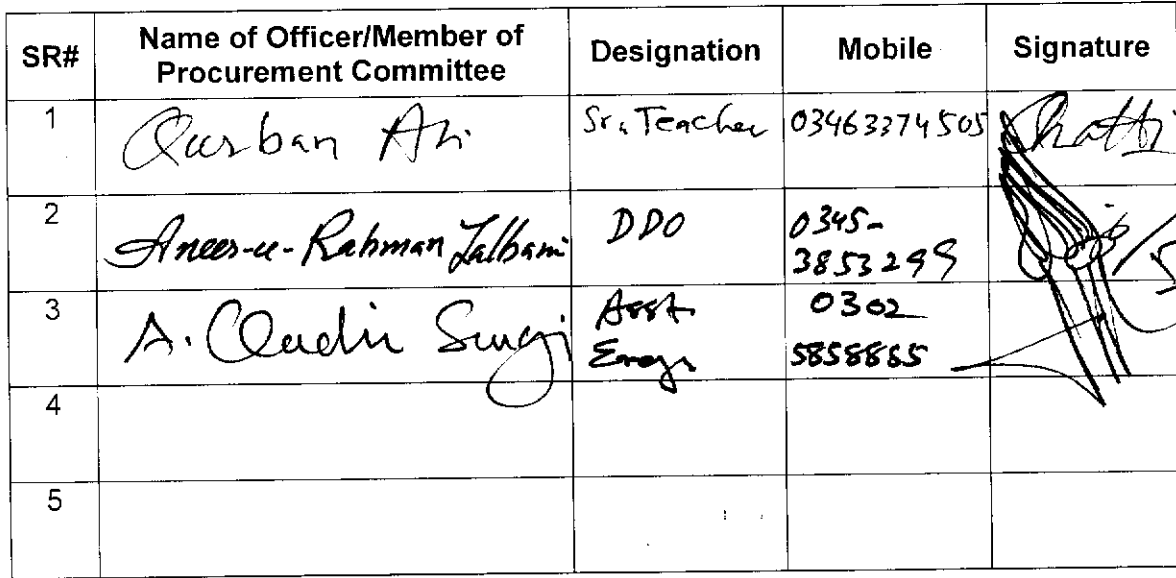 SR# Name of Officer/Member of Procurement Committee Designation Mobile Signature
1 Qurban Ali Sr. Teacher 03463374505
2 Anees-u-Rahman Jalbani DDO 0345-
3853299
3 A. Quadir Asst. 0302
Engr 5858865
4
5